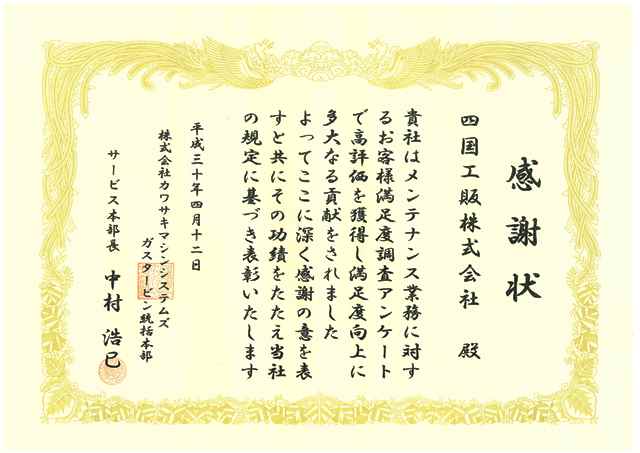 感謝状
四国工販株式会社 殿
貴社はメンテナンス業務に対す
るお客様満足度調査アンケート
で高評価を獲得し満足度向上に
多大なる貢献をされました
よってここに深く感謝の意を表
すと共にその功績をたたえ当社
の規定に基づき表彰いたします
平成三十年四月十二日
株式会社カワサキマシンシステムズ
ガスタービン統括本部
サービス本部長 中村 浩已